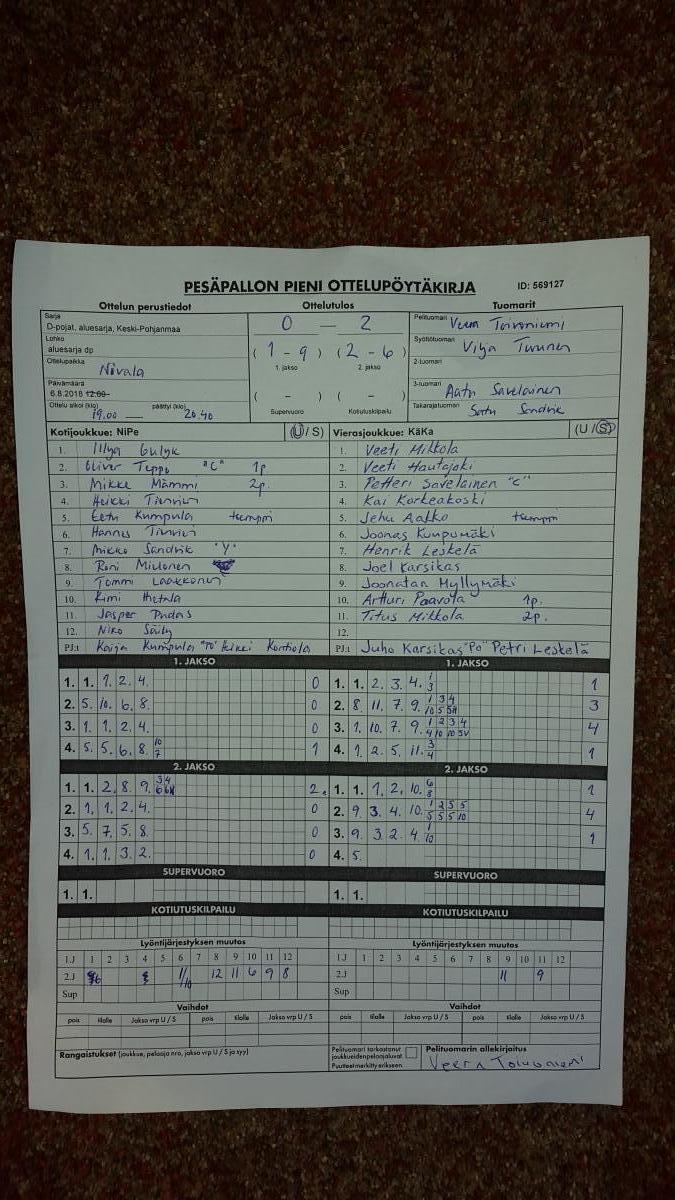 PESÄPALLON PIENI OTTELUPÖYTÄKIRJA ID: 569127
Ottelun perustiedot Ottelutulos Tuomarit
Sarja
D-pojat, aluesarja, Keski-Pohjanmaa
Lohko
aluesarja dp
Ottelupaikka Nivala
Päivämäärä
6.8.2018 12:00
Ottelu alkoi (klo) 19.00 — päättyi (klo) 20.40
0 — 2
( 1 - 9 ) ( 2 - 6 )
1. jakso 2. jakso
( - ) ( - )
Supervuoro Kotiutuskilpailu
Pelituomari Veera Toivoniemi
Syöttötuomari Vilja Turunen
2-tuomari
3-tuomari Aatu Savelainen
Takarajatuomari Satu Sandvik
Kotijoukkue: NiPe (U / S)
1. Illya Gulyk
2. Oliver Teppo "C" 1p
3. Mikke Mämmi 2p.
4. Heikki Tinnien
5. Eetu Kumpula tsemppi
6. Hannes Tinnien
7. Mikko Sandvik "V"
8. Roni Miulonen
9. Tommi Laakkonen
10. Kimi Hietala
11. Jasper Pudas
12. Niko Säily
PJ:t Kaija Kumpula "PO" Heikki Kontiola
Vierasjoukkue: KäKa (U / S)
1. Veeti Mikkola
2. Veeti Hautajoki
3. Petteri Savelainen "C"
4. Kai Korkeakoski
5. Jehu Aatko tsemppi
6. Joonas Kumpumäki
7. Henrik Leskelä
8. Joel Karsikas
9. Joonatan Myllymäki
10. Artturi Paavola 1p.
11. Titus Mikkola 2p.
12.
PJ:t Juho Karsikas "PO" Petri Leskelä
1. JAKSO
1. 1. 1. 2. 4. 0
2. 5. 10. 6. 8. 0
3. 1. 1. 2. 4. 0
4. 5. 5. 6. 8. 10 7 1
2. JAKSO
1. 1. 2. 8. 9. 2.
2. 1. 1. 2 4. 0
3. 5. 7. 5. 8. 0
4. 1. 1. 3. 2. 0
SUPERVUORO
1. 1.
KOTIUTUSKILPAILU
1. JAKSO
1. 1. 2. 3. 4. 1 3 1
2. 8 11. 7. 9. 3
3. 1. 10. 7. 9. 4
4. 1. 2. 5. 11. 3 4 1
2. JAKSO
1. 1. 1. 2. 10. 6 8 1
2. 9. 3. 4. 10. 1 2 5 5 5 5 5 10 4
3. 9. 3. 2. 4. 1 10 1
4. 5.
SUPERVUORO
1. 1.
KOTIUTUSKILPAILU
Lyöntijärjestyksen muutos
1.J 1 2 3 4 5 6 7 8 9 10 11 12
2.J 12 11 6 9 8
Sup
Vaihdot
pois tilalle Jakso vrp U / S pois tilalle Jakso vrp U / S
Lyöntijärjestyksen muutos
1.J 1 2 3 4 5 6 7 8 9 10 11 12
2.J 11 9
Sup
Vaihdot
pois tilalle Jakso vrp U / S pois tilalle Jakso vrp U / S
Rangaistukset (joukkue, pelaaja nro, jakso vrp U / S ja syy)
Pelituomari tarkastanut
joukkueidenpelaajaluvat
Puutteet merkitty erikseen.
Pelituomarin allekirjoitus
Veera Toivoniemi